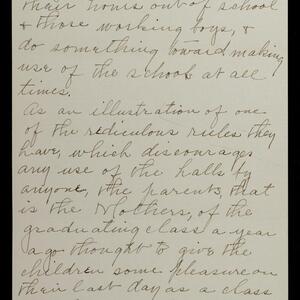 their hours out of school
& those working boys, &
do something toward making
use of the school at all
times.
As an illustration of one
of the rediculous rules they
have, which discourages
any use of the halls by
anyone, the parents, that
is the Mothers, of the
graduating class a year
ago thought to give the
children some pleasure on
their last day as a class